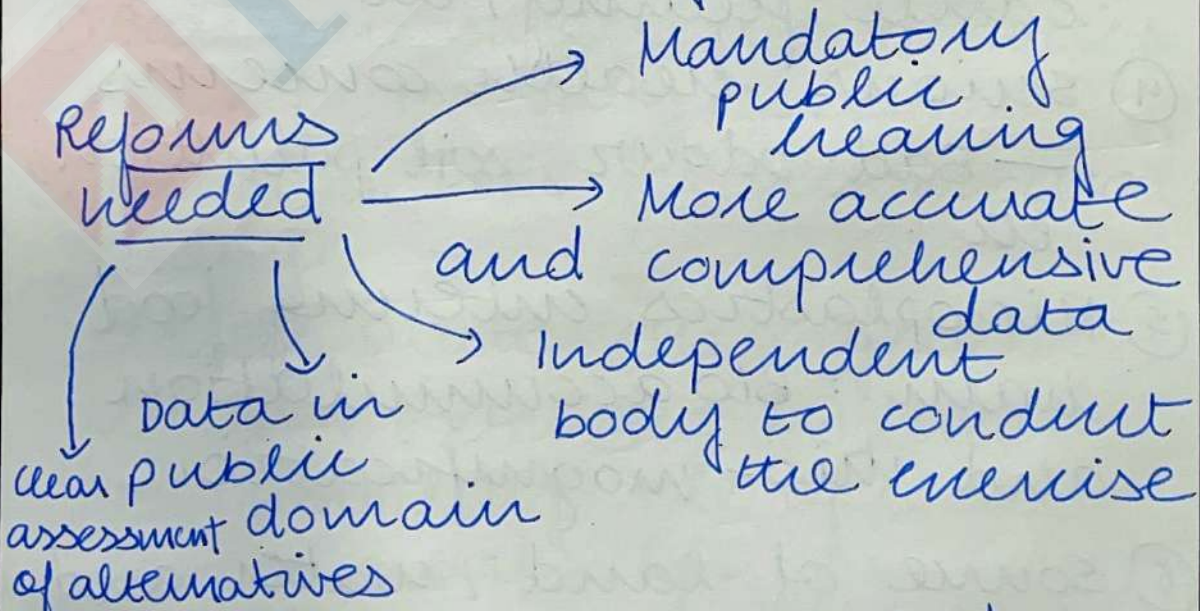 Reforms
needed
Mandatory
public
hearing
More accurate
and comprehensive
data
Independent
body to conduct
the exercise
Data in
public
domain
clear
assessment
of alternatives